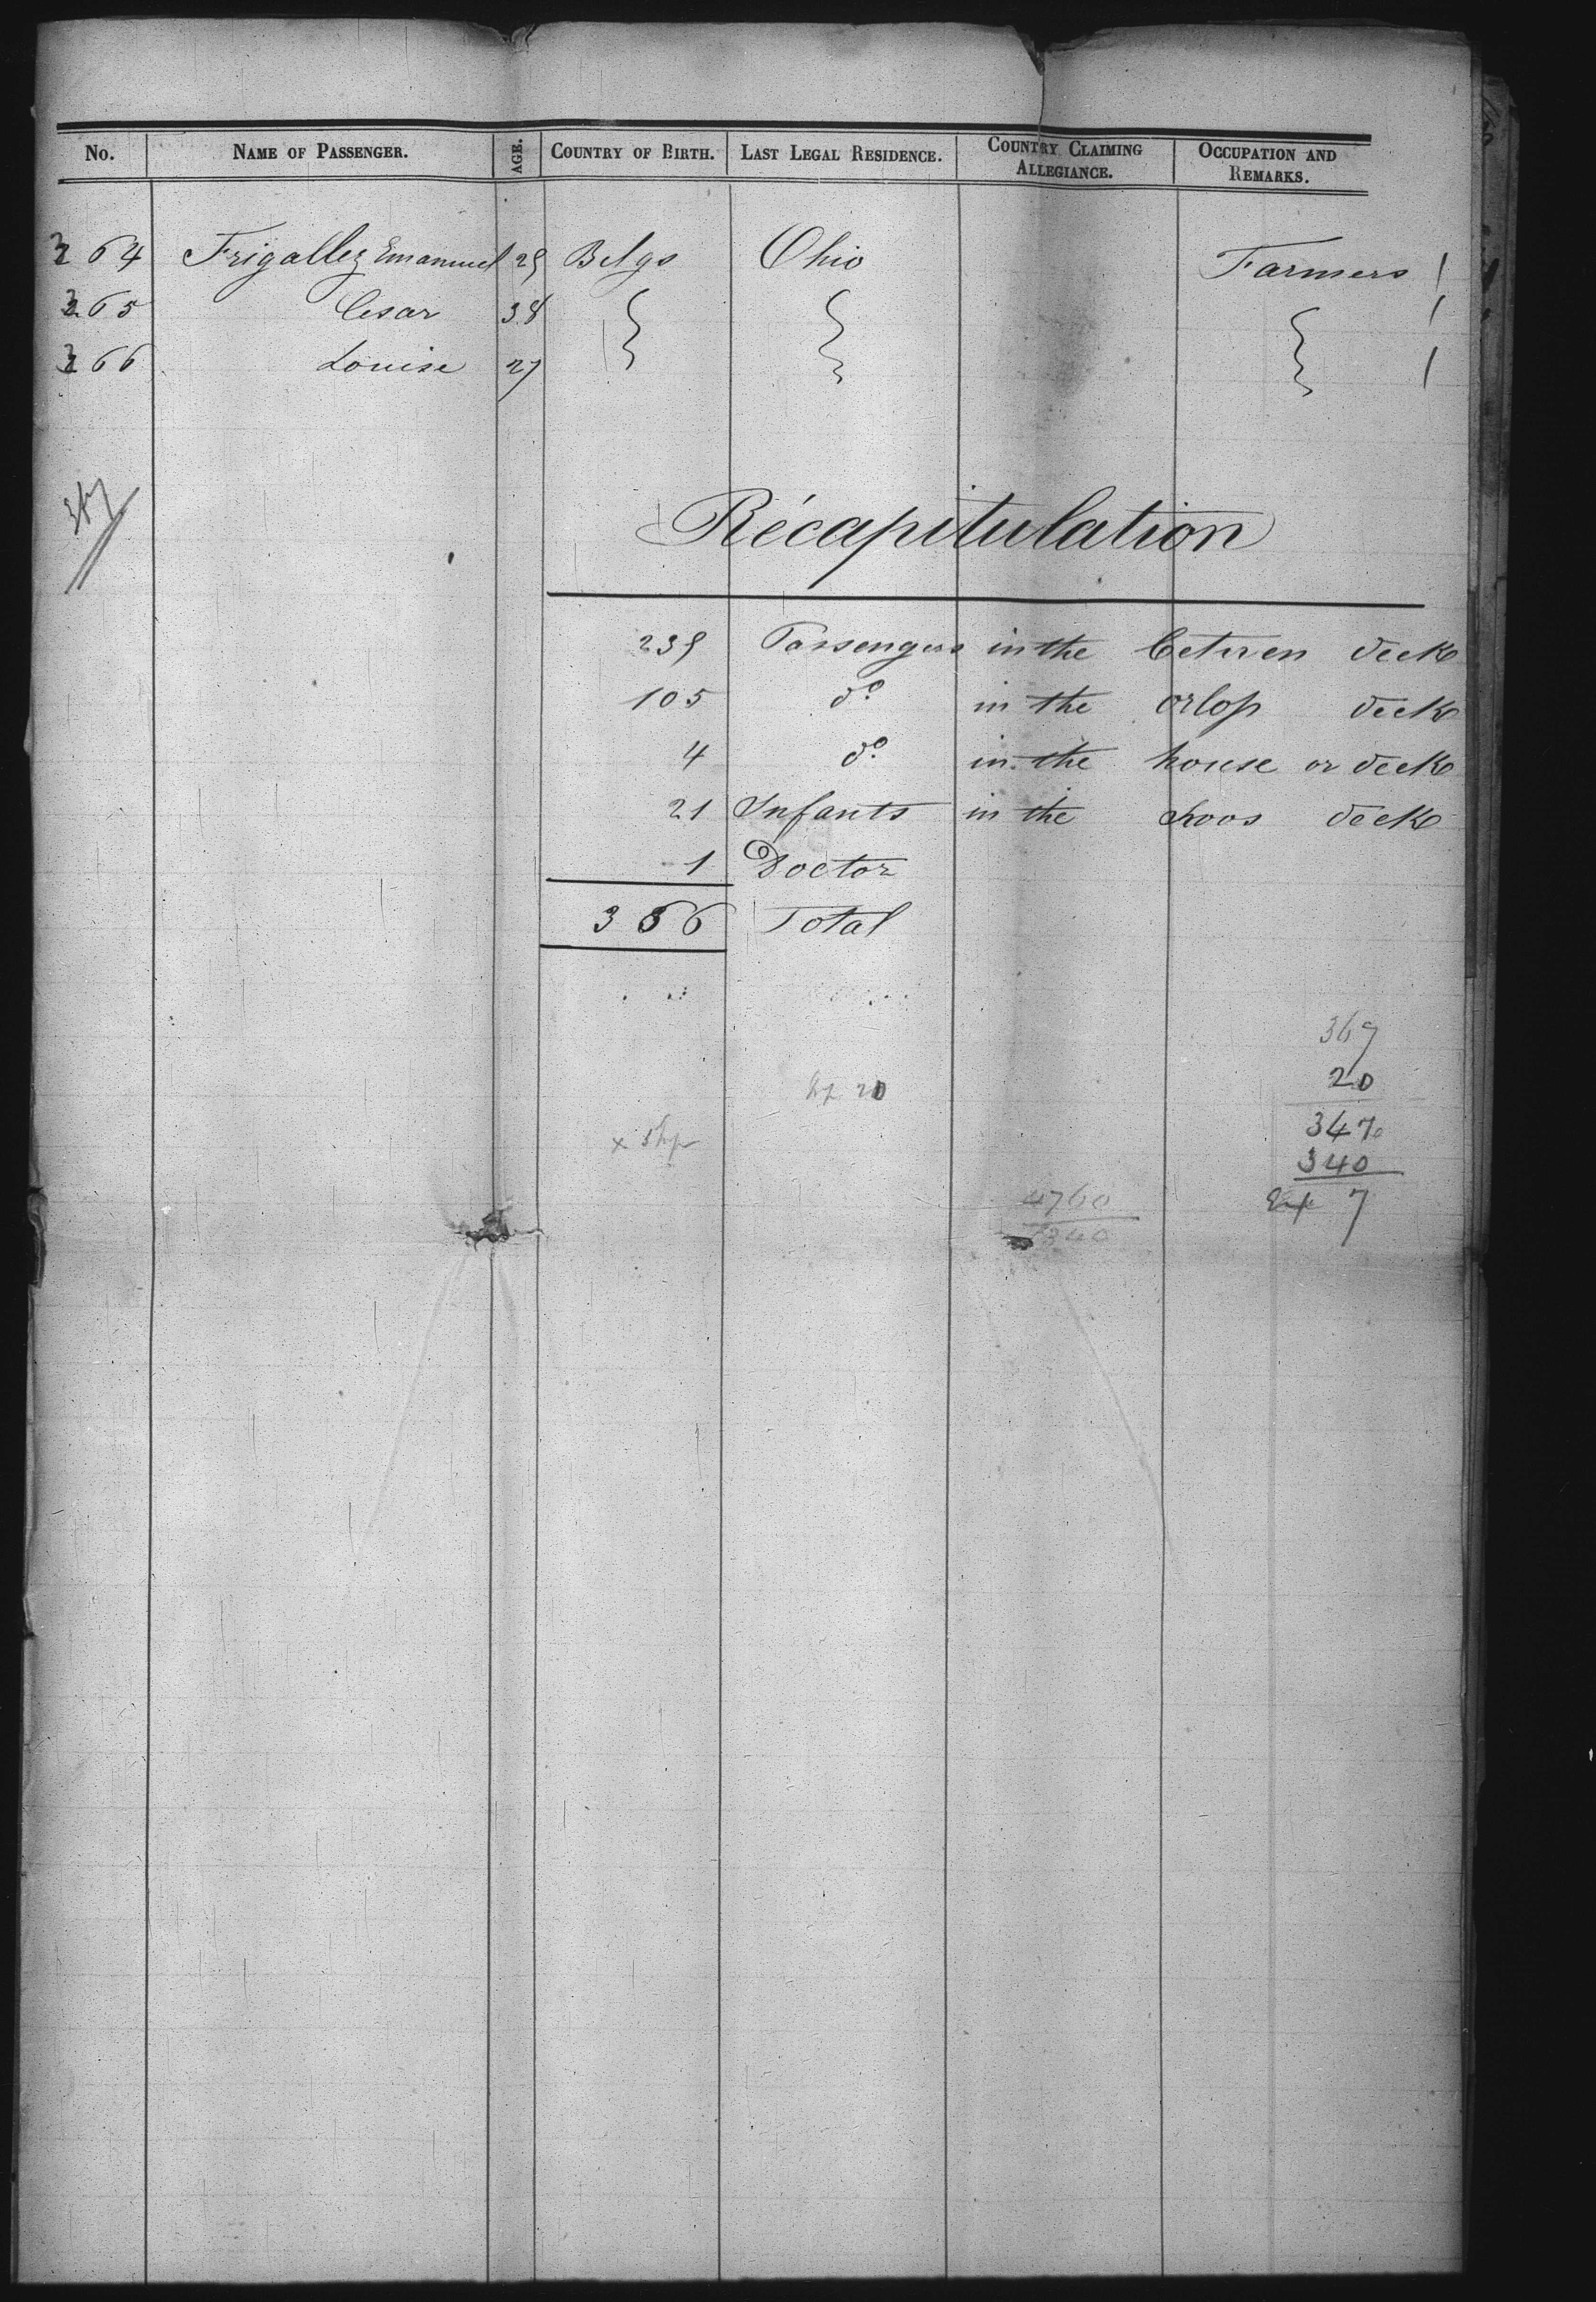 No. NAME OF PASSENGER. AGE. COUNTRY OF BIRTH. LAST LEGAL RESIDENCE. COUNTRY CLAIMING ALLEGIANCE. OCCUPATION AND REMARKS.
364 Frigallez Emanuel 29 Belgs Ohio Farmers 1
365 Cesar 38 1
366 Louise 27 1
Récapitulation
239 Passengers in the between deck
105 do in the orlop deck
4 do in the house or deck
21 Infants in the deck
1 Doctor
366 Total
367
20
20
347
340
7
4760
340